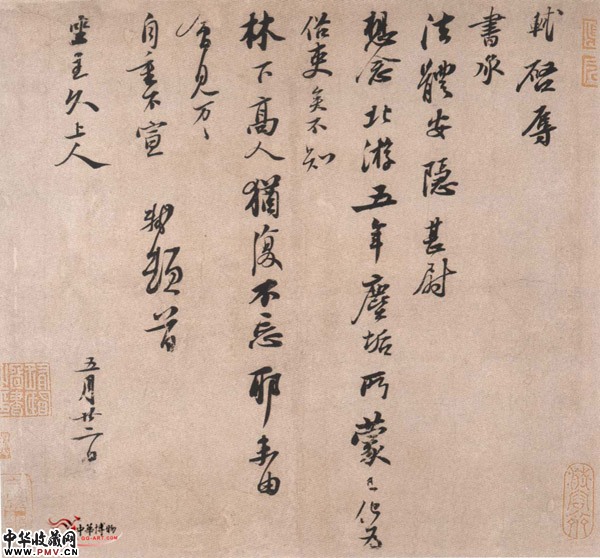 軾啓辱
書承
法體安隱甚尉
想念北游五年塵垢所蒙已化為
俗吏矣不知
林下高人猶復不忘耶未由
會見万〻
自重不宣 軾頓首
坐主久上人
五月廿二日
中华博物
中华收藏网
WWW.PMV.CN